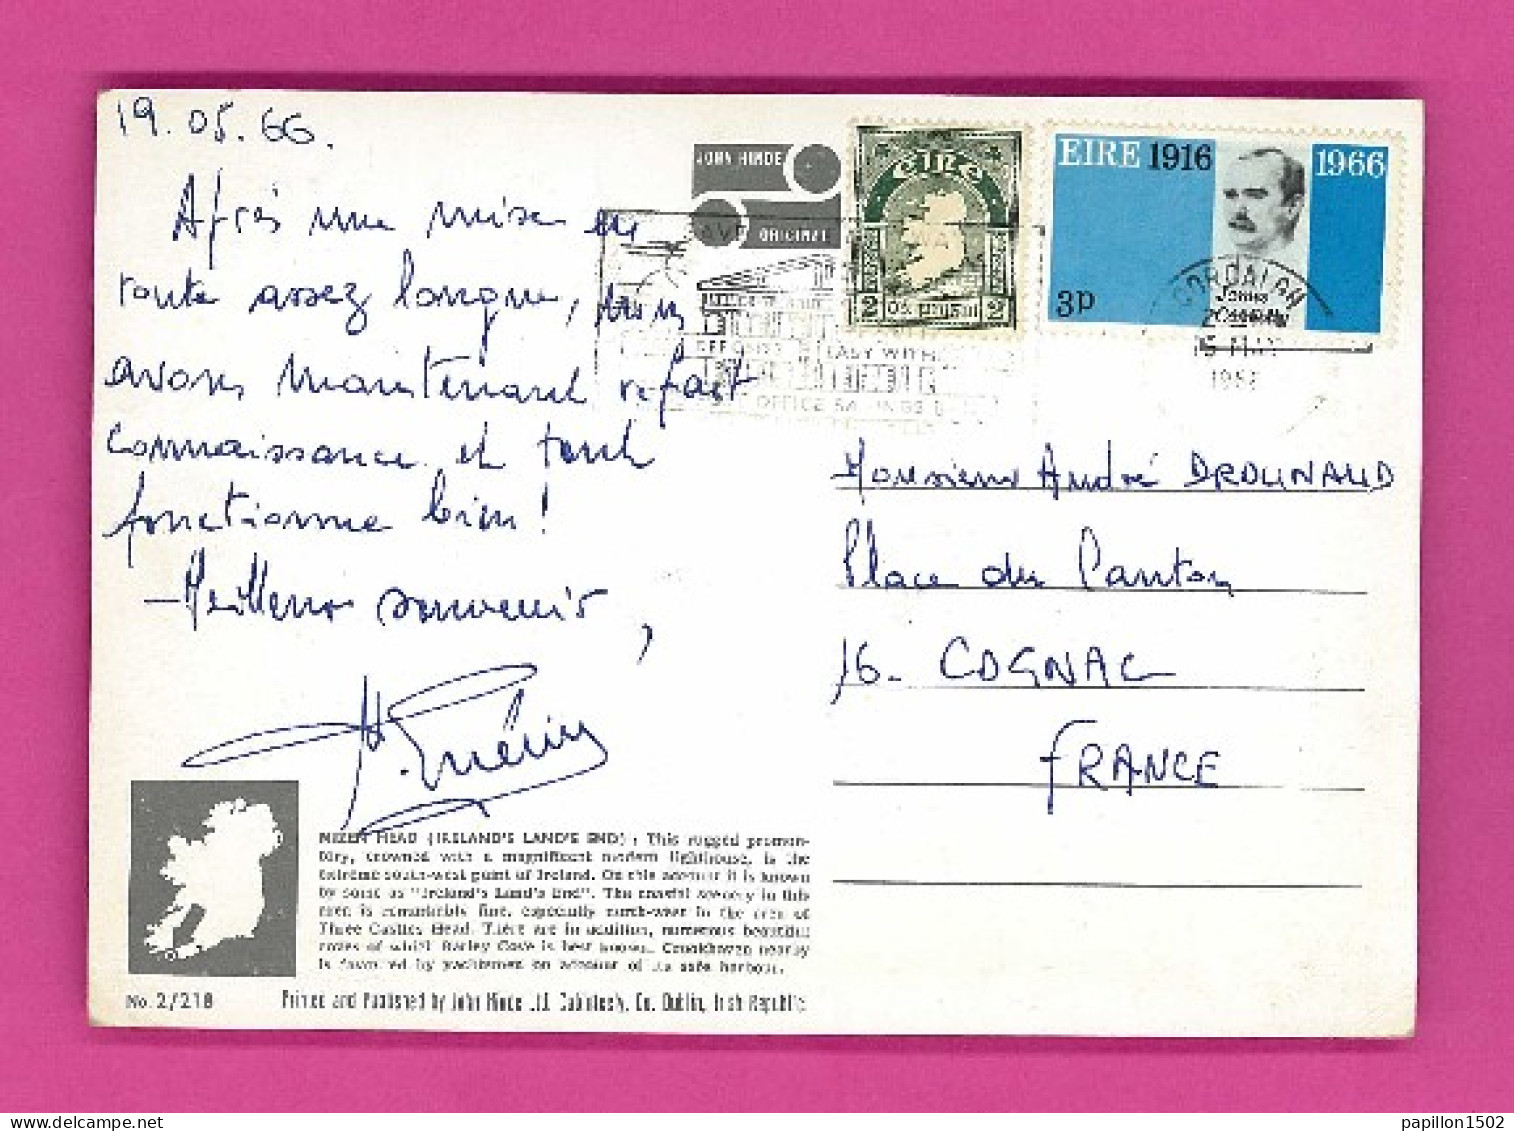 19.05.66.
Après une mise en
route assez longue, nous
avons maintenant refait
connaissance et tout
fonctionne bien!
Meilleurs souvenirs,
JOHN HINDE
ORIGINAL
eire
2 2
EIRE 1916 1966
3p
CORDALON
1966
EASY WITH
OFFICE SAVINGS
Monsieur André DROUNAUD
Place du Canton
16- COGNAC
FRANCE
MIZEN HEAD (IRELAND'S LAND'S END): This rugged promon-
tory, crowned with a magnificent modern lighthouse, is the
extreme south-west point of Ireland. On this account it is known
by some as "Ireland's Land's End". The coastal scenery in this
area is remarkably fine, especially north-west in the area of
Three Castles Head. There are in addition, numerous beautiful
coves of which Barley Cove is best known. Crookhaven nearby
is favoured by yachtsmen on account of its safe harbour.
No. 2/218
Printed and Published by John Hinde Ltd. Cabinteely, Co. Dublin, Irish Republic.
papillon1502